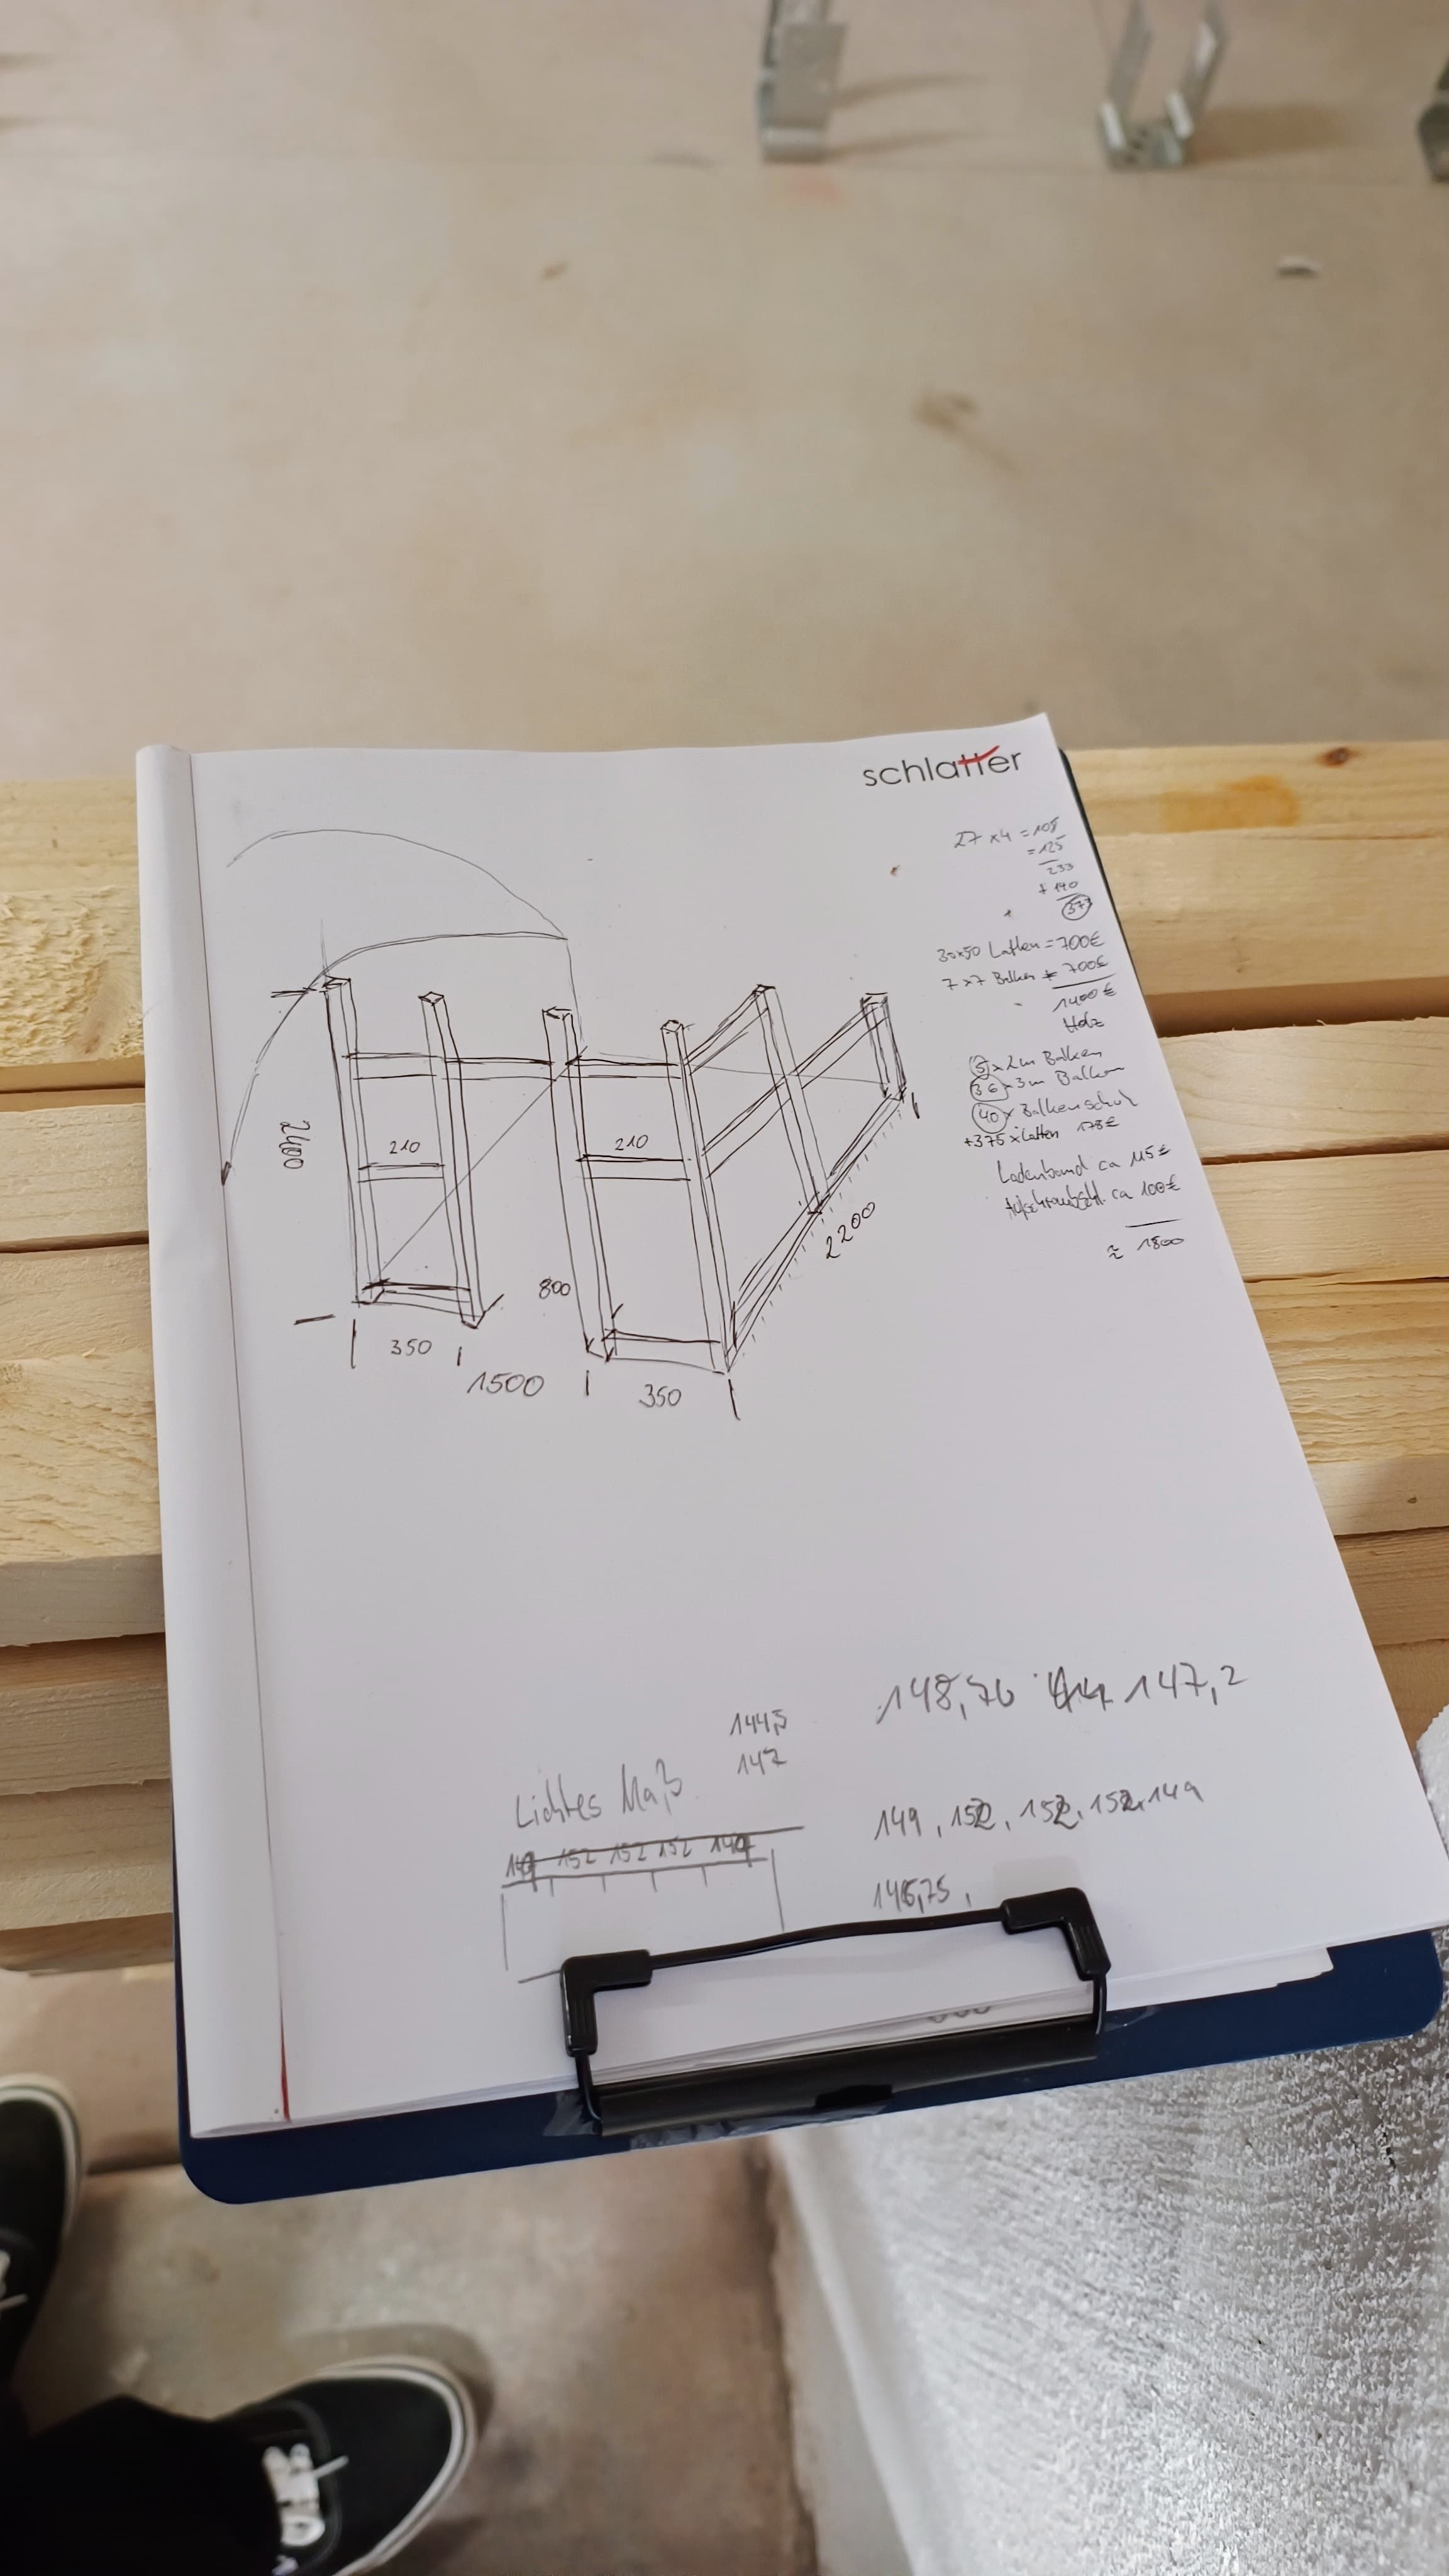 schlatter
27 x 4 = 108
= 125
233
+ 140
373
30x50 Latten = 700€
7x7 Balken + 700€
1400€
Holz
5 x 2m Balken
36 x 3m Balken
40 x Balkenschuh
+375 x Latten 175€
Ladenband ca 115€
ca 100€
≈ 1800
2400
210
210
800
2200
350
1500
350
148,76
147,2
144,5
147
Lichtes Maß
149, 152, 152, 152, 149
152 152 152